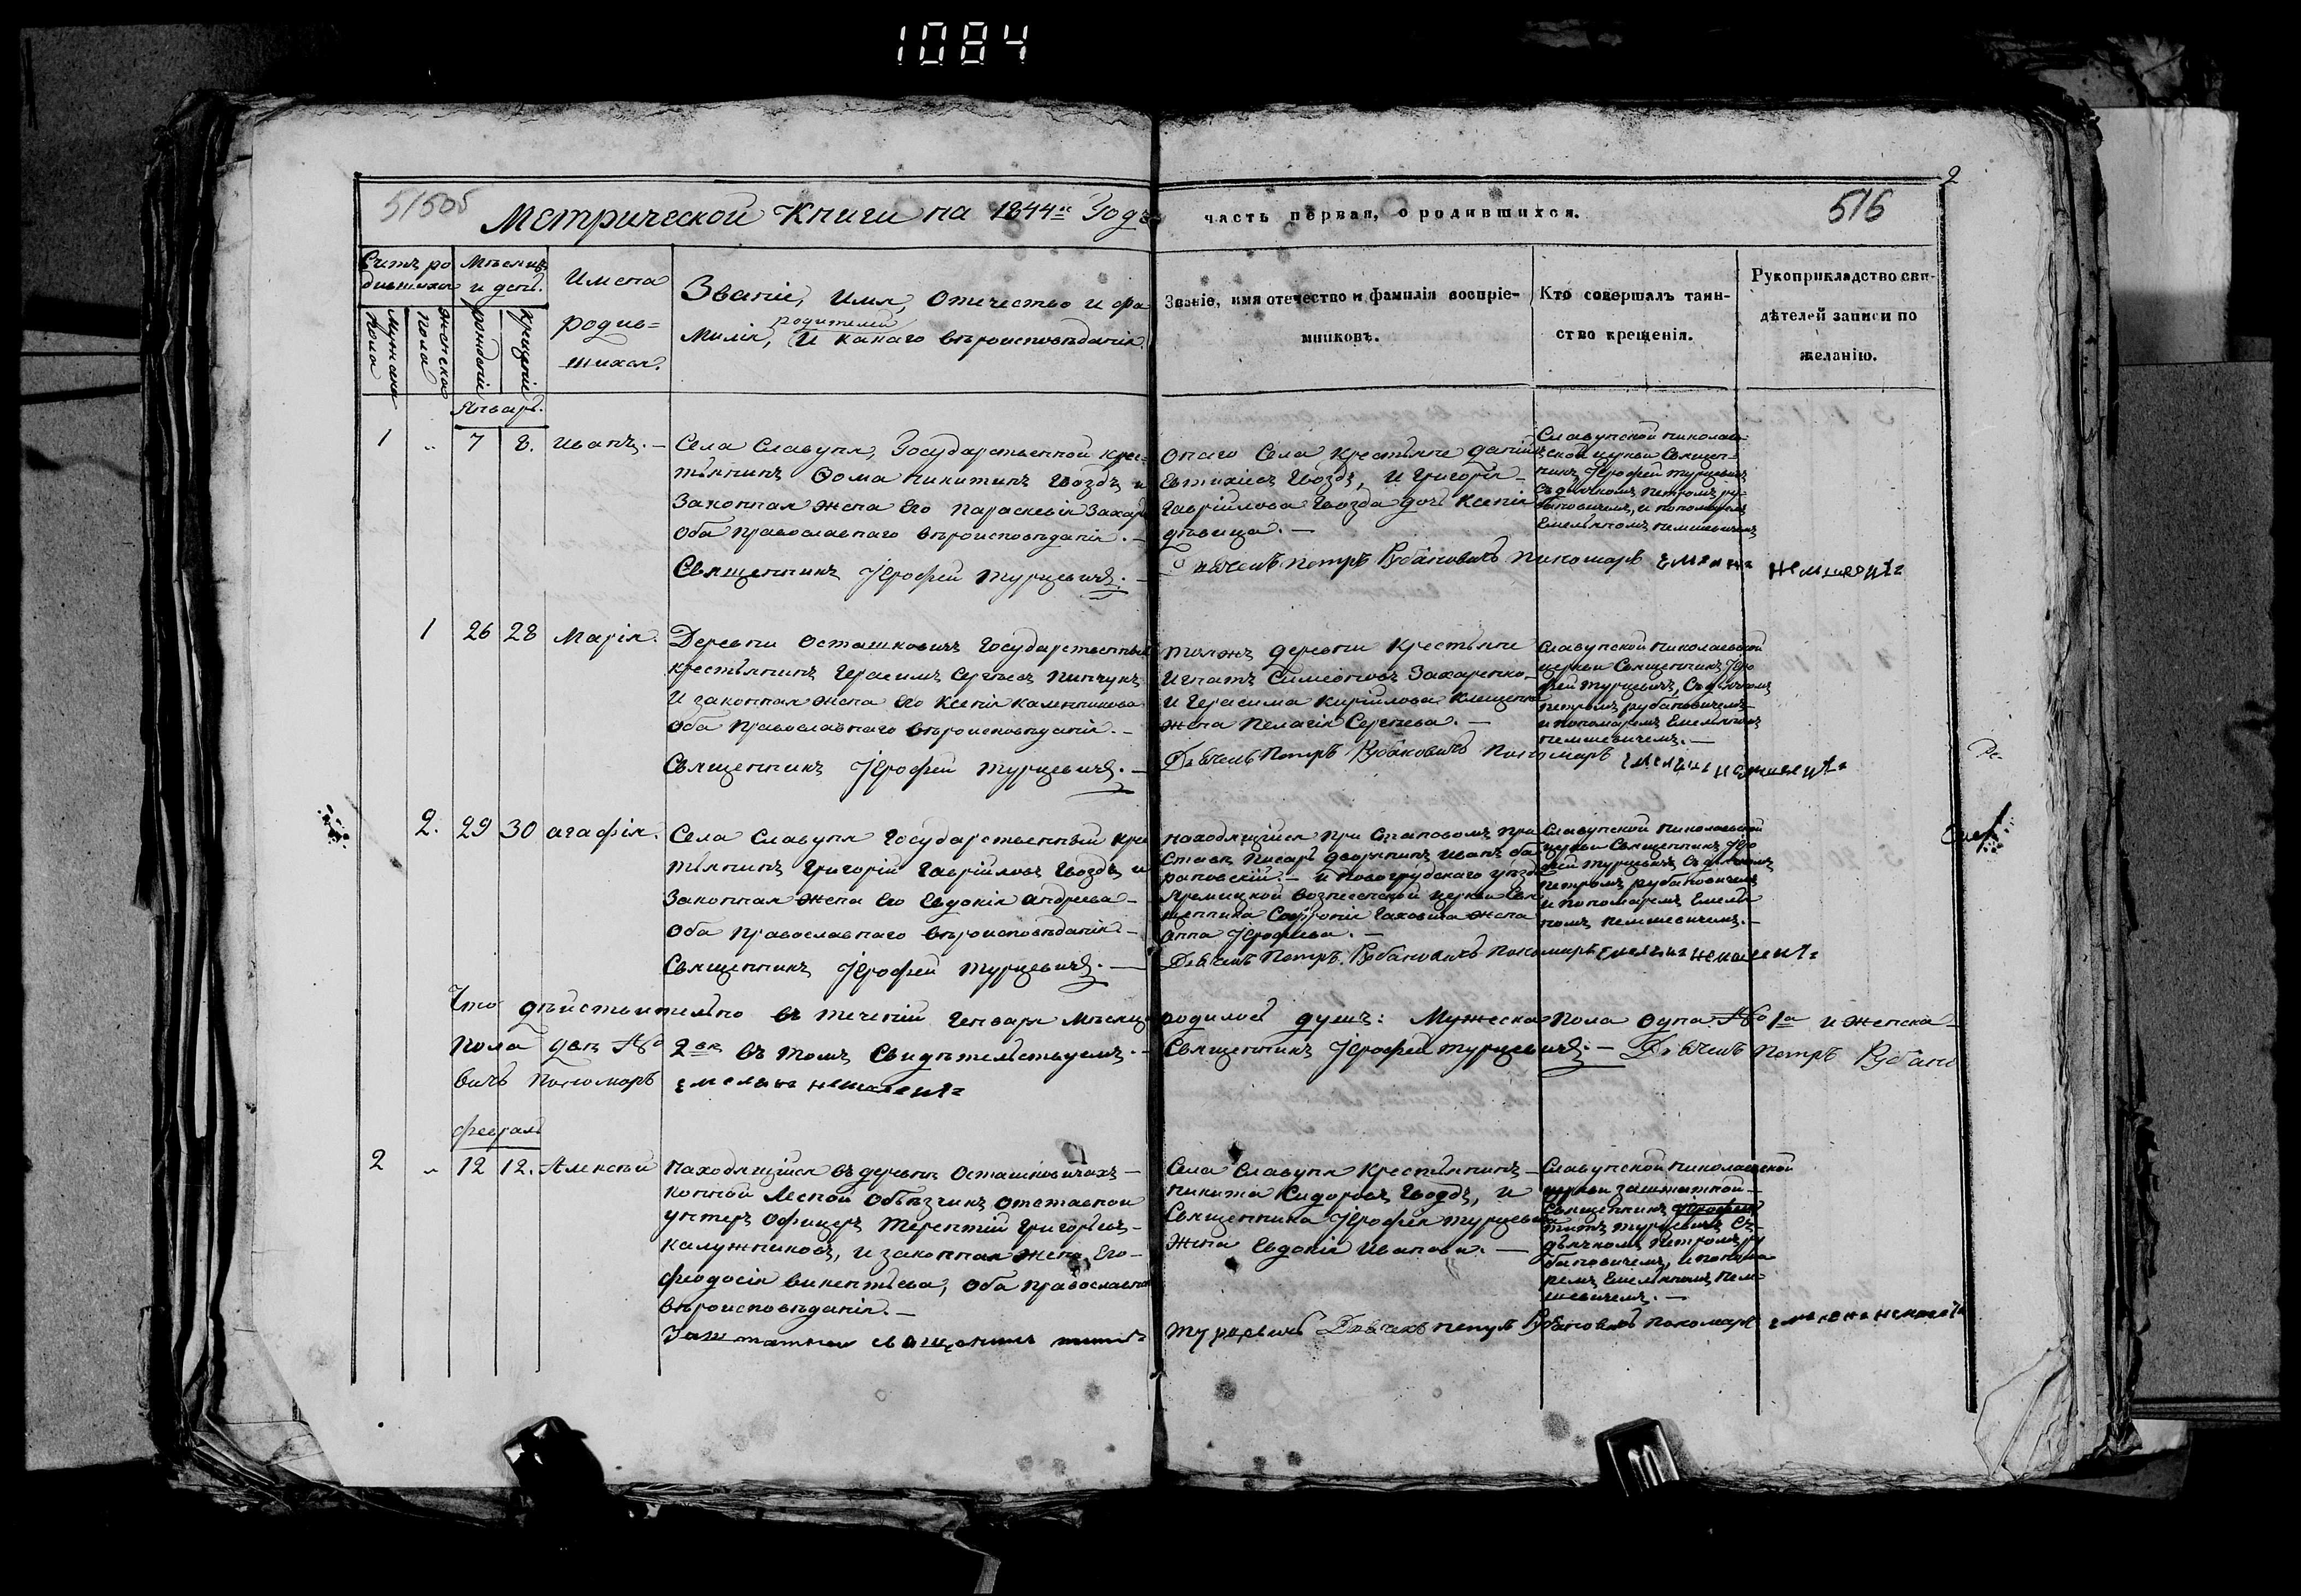 1084
2
515об
516
Метрической Книги на 1844й Годъ
часть первая, о родившихся.
Счетъ ро
дившихся
Мужеска
Пола
Женска
Пола
Мѣсяцъ
и день.
рожденія
крещенія
Имена
родив=
шихся.
Званіе, Имя, Отчество и фа
родителей
милія, И какаго вѣроисповѣданія.
Званіе, имя отечество и фамилія воспріе-
мниковъ.
Кто совершалъ таин-
ство крещенія.
Рукоприкладство сви-
дѣтелей записи по
желанію.
Январь.
1 " 7 8. Иванъ.
Села Славупя, Государственной крес=
тьянинъ Ѳома Никитинъ Гвоздь и
Законная жена Его Параскевія Захар
Оба Православнаго вѣроисповѣданія. —
Священникъ Іерофей Турцевичъ. —
Онаго Села крестьяне Даніилъ
Евтихіевъ Гвоздь, и Григорія
Гавріилова Гвоздя дочь Ксенія
дѣвица. —
Славупской Николаев-
ской церкви Священ-
никъ Іерофей Турцевичъ
съ дьячкомъ Петромъ Ру-
бановичемъ, и пономаремъ
Емельяномъ Немшевичемъ
Дьячекъ Петръ Рубановичъ Пономарь Емельян Немшевич
1 26 28 Марія.
Деревни Осташковичъ Государственный
крестьянинъ Герасимъ Сергѣевъ Пинчукъ
И законная жена Его Ксенія Калинникова
Оба Православнаго вѣроисповѣданія. —
Священникъ Іерофей Турцевичъ. —
Тояжъ деревни Крестьяне
Игнатъ Симеоновъ Захаренко
И Герасима Кирилова Клещенка
жена Пелагія Сергѣева. —
Славупской Николаевской
церкви Священникъ Іеро
фей Турцевичъ, Съ дьячкомъ
Петромъ Рубановичемъ
и пономаремъ Емельяномъ
Немшевичемъ. —
Дьячекъ Петръ Рубановичъ Пономарь Емельян Немшевич
2. 29 30 Агафія.
Села Славупя Государственный кре
тьянинъ Григорій Гавріиловъ Гвоздь и
Законная жена Его Евдокія Андреева
Оба Православнаго вѣроисповѣданія. —
Священникъ Іерофей Турцевичъ. —
Находящійся При Становомъ При
Ставѣ Писарь дворянинъ Иванъ Ба
рановскій. — и Новогрудскаго уѣзда
Яремицкой Вознесенской церкви Свя
щенника Софронія Гаховича жена
Анна Іерофеева. —
Славупской Николаевской
церкви Священникъ Іеро
фей Турцевичъ Съ дьячкомъ
Петромъ Рубановичемъ
и пономаремъ Емелья
номъ Немшевичемъ. —
Дьячекъ Петръ Рубановичъ Пономарь Емельян Немшевич
Что дѣйствительно въ теченій Генваря Мѣсяца родилось душъ: Мужеска Пола Одна №1а и женска
Пола двѣ № 2вѣ въ томъ Свидѣтельствуемъ. — Священникъ Іерофей Турцевичъ. — Дьячекъ Петръ Рубано
вичъ Пономарь Емельян Немшевич
Февраль
2 " 12 12. Алексѣй
Находящійся въ деревнѣ Осташковичахъ —
Конной Лесной Объѣзчикъ Отставной
унтеръ Офицеръ Терентій Григорьевъ —
Калужниковъ, и законная жена Его —
Феодосія Викентьева, Оба Православнаго
вѣроисповѣданія. —
Заштатной священникъ Титъ Турцевичъ Дьячекъ Петръ Рубановичъ Пономарь Емельян Немшевич
Села Славупя Крестьянинъ
Никита Сидоровъ Гвоздь, и
Священника Іерофея Турцевича
Жена Евдокія Иванова. —
Славупской Николаевской
церкви заштатной
Священникъ
Титъ Турцевичъ Съ
дьячкомъ Петромъ Ру
бановичемъ, и понома
ремъ Емельяномъ Нем-
шевичемъ. —